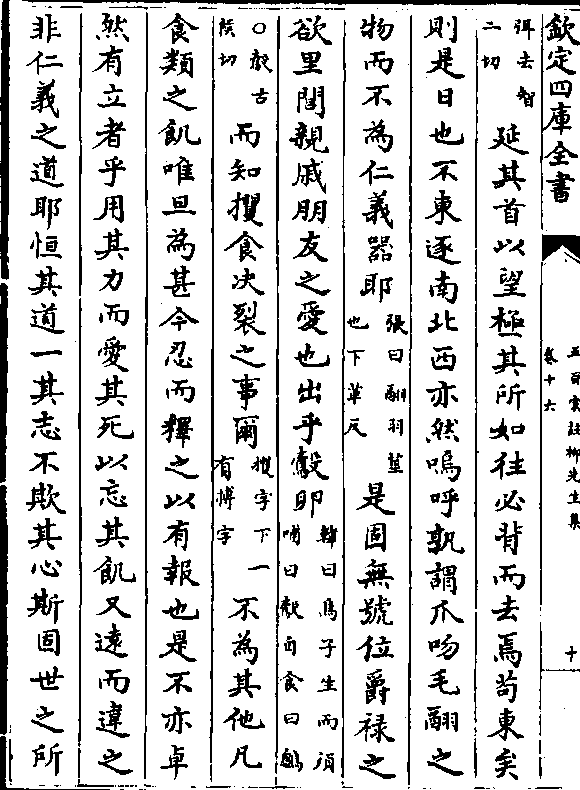 欽定四庫全書
五百家註柳先生集
卷十六
十
弭去智
二切
延其首以望極其所如往必背而去焉苟東矣
則是日也不東逐南北西亦然嗚呼孰謂爪吻毛翮之
物而不為仁義器耶
張曰翮羽莖
也下革反
是固無號位爵禄之
欲里閭親戚朋友之愛也出乎鷇卵
韓曰鳥子生而須
哺曰鷇自食曰鶵
○鷇古
候切
而知攫食决裂之事爾
攫字下一
有搏字
不為其他凡
食類之飢唯旦為甚今忍而釋之以有報也是不亦卓
然有立者乎用其力而愛其死以忘其飢又遠而違之
非仁義之道耶恒其道一其志不欺其心斯固世之所